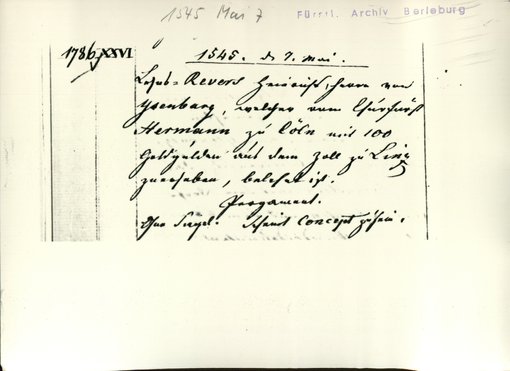 1545 Mai 7
Fürstl. Archiv Berleburg
1786, XXVI
1545. d. 7. Mai.
Lehns-Revers Heinrichs, Herrn von
Ysenburg, welcher vom Churfürst
Hermann zu Cöln mit 100
Goldgulden aus dem Zoll zu Linz
zu erheben, belehnt ist.
Pergament.
Ohne Siegel. Scheint Concept zu sein.